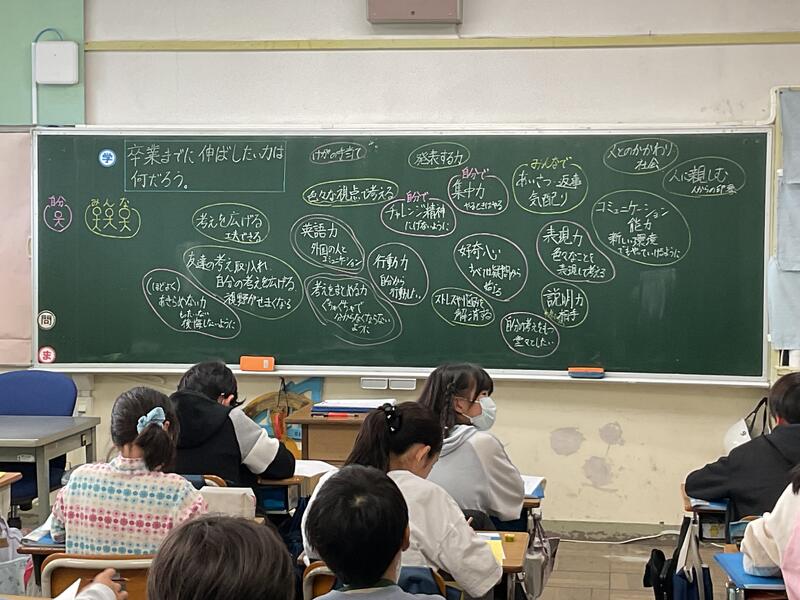 学
卒業までに伸ばしたい力は
何だろう。
自分
みんな
けがの手当て
発表する力
人とのかかわり
社会
人に親しむ
色々な視点で考える
自分で
チャレンジ精神
にげないように
自分で
集中力
やるときはやる
みんなで
あいさつ 返事
気配り
コミュニケーション
能力
新しい環境
でもやっていけるように
考えを広げる
工夫できる
英語力
外国の人と
コミュニケーション
行動力
自分から
行動したい
好奇心
から
表現力
色々なことを
表現して考える
友達の考え取り入れ
自分の考えを広げる
視野がせまくなる
(ほどよく)
あきらめない力
もったいない
後悔しないように
考えをまとめる力
ぐちゃぐちゃで
分からなくならない
ように
ストレスや
解消する
説明力
相手
自分の考えを
堂々としたい
問
ま